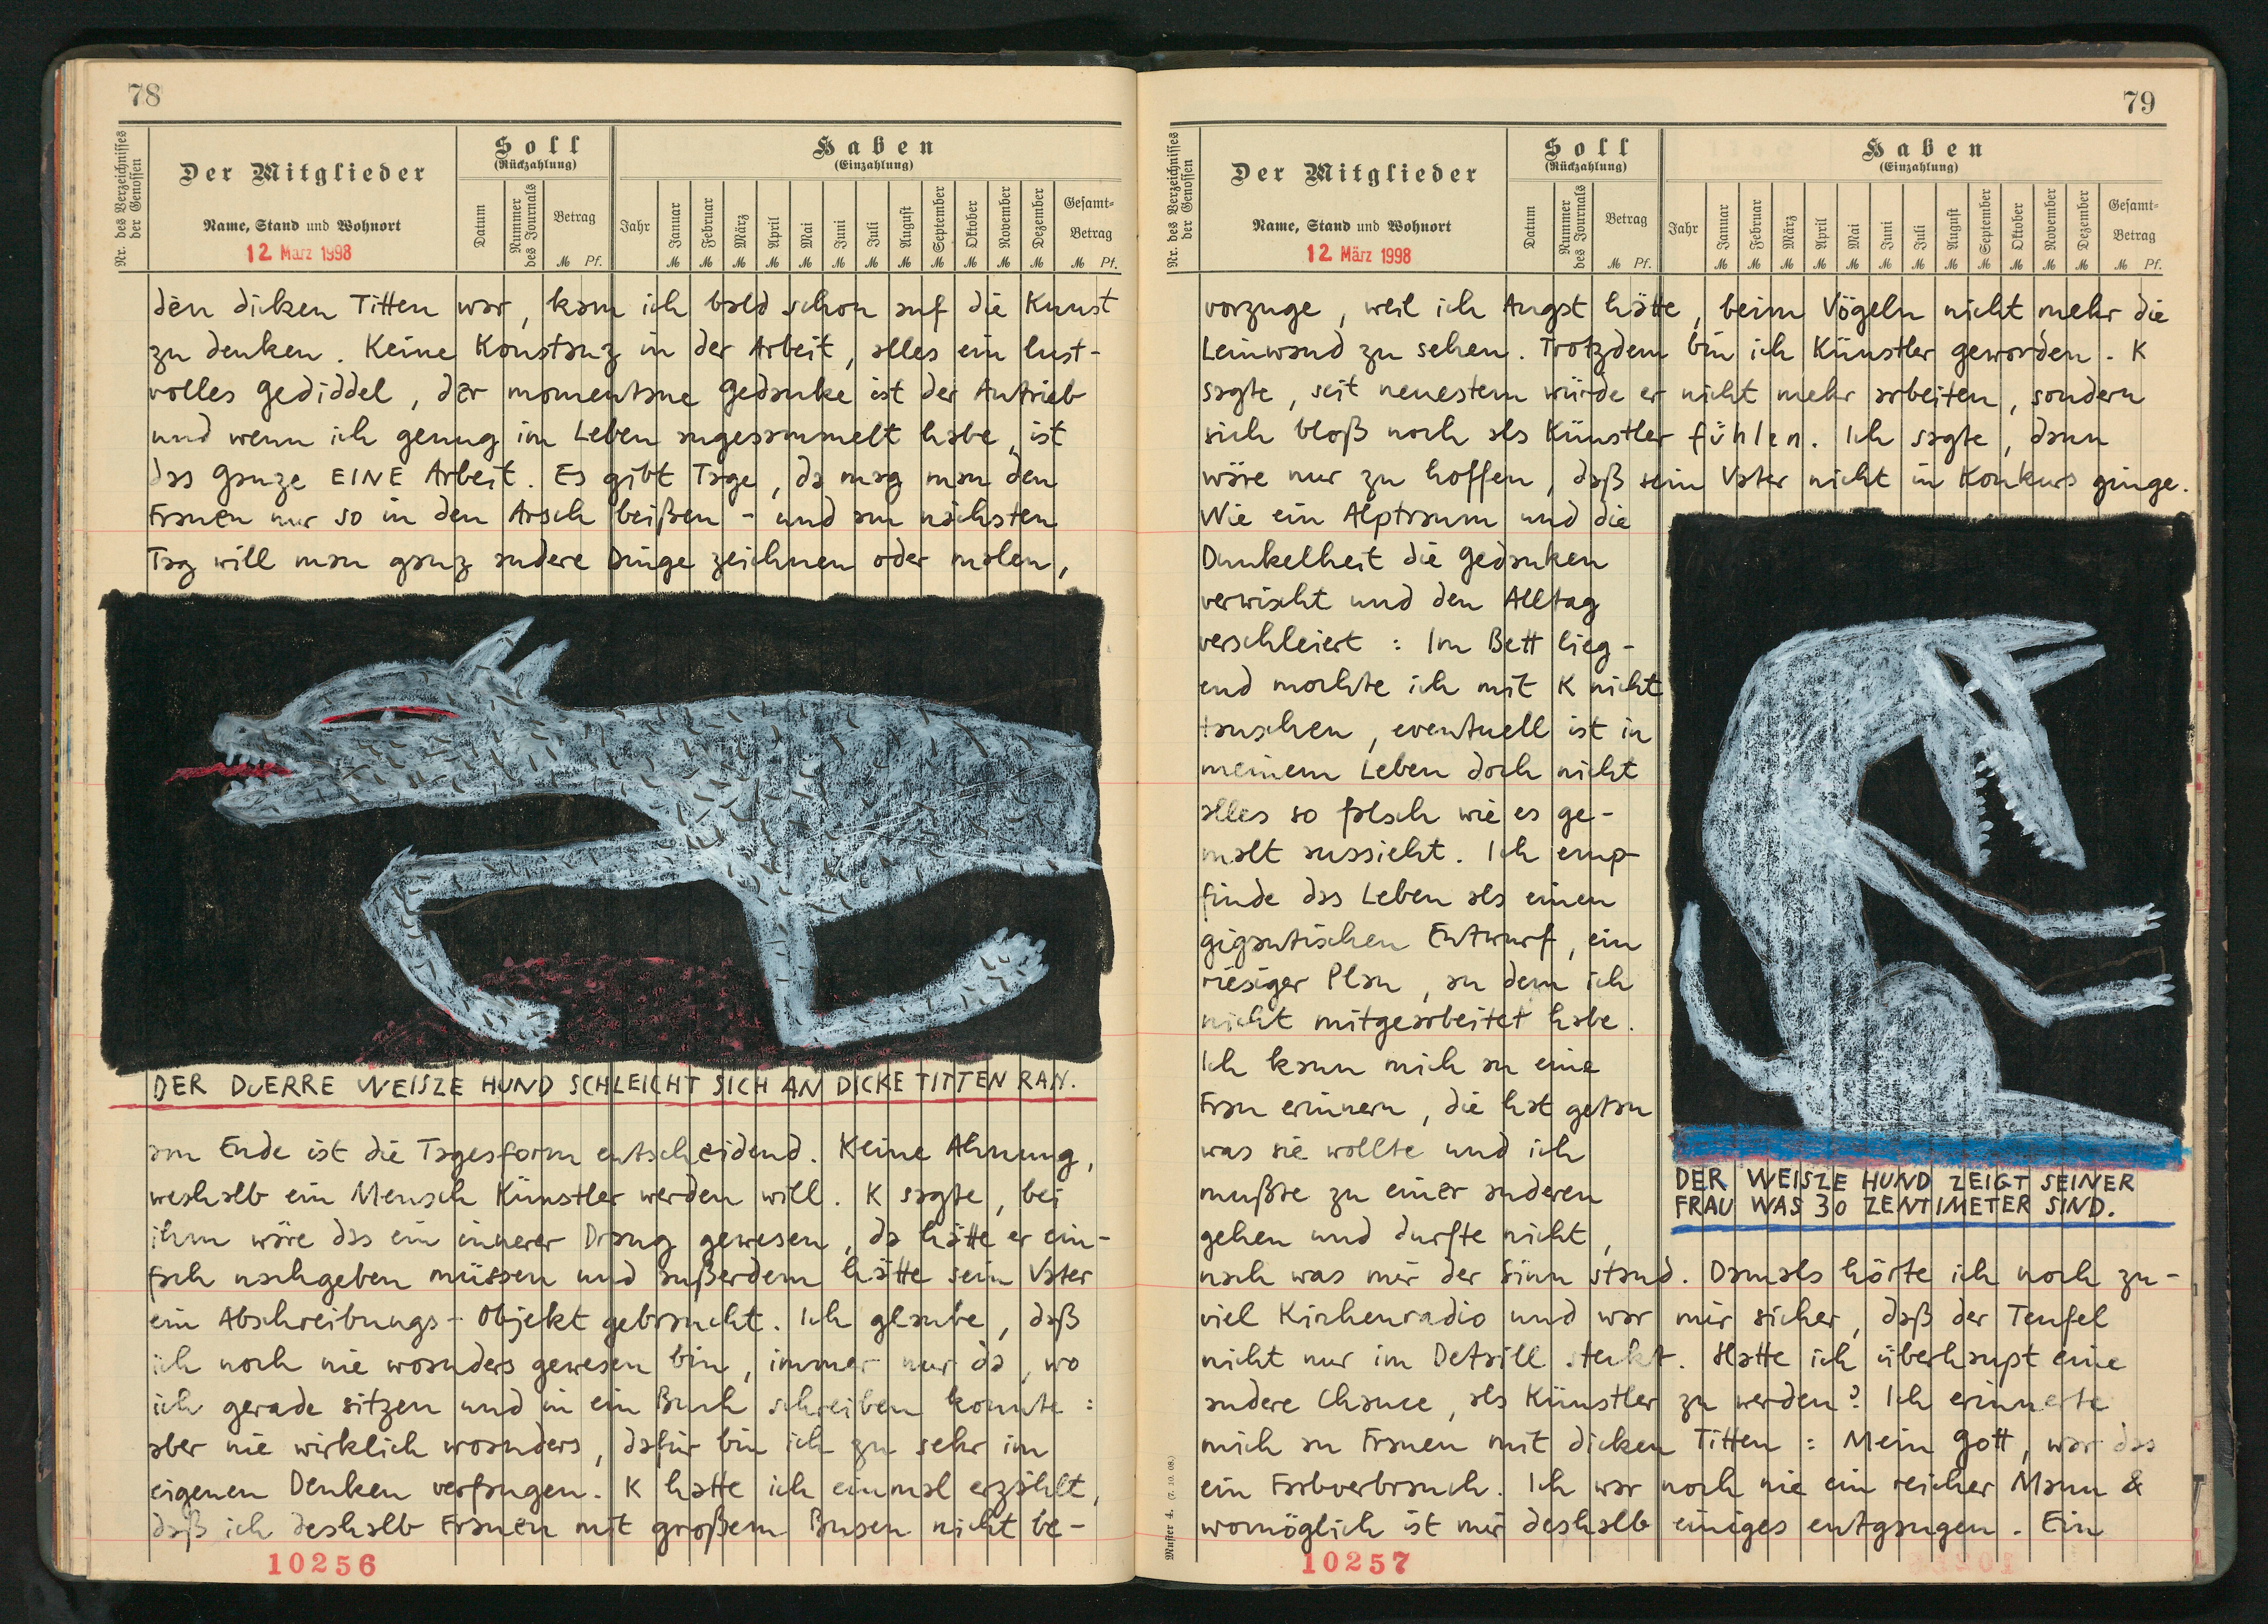 78
Nr. des Verzeichnisses der Genossen
Der Mitglieder
Name, Stand und Wohnort
12. März 1998
Soll
(Rückzahlung)
Datum
Nummer des Journals
Betrag
M Pf.
Haben
(Einzahlung)
Jahr
Januar
Februar
März
April
Mai
Juni
Juli
August
September
Oktober
November
Dezember
M M M M M M M M M M M M
Gesamt-
Betrag
M Pf.
den dicken Titten war, kam ich bald schon auf die Kunst
zu denken. Keine Konstanz in der Arbeit, alles ein lust-
volles Gediddel, der momentane Gedanke ist der Antrieb
und wenn ich genug im Leben angesammelt habe, ist
das ganze EINE Arbeit. Es gibt Tage, da mag man den
Frauen nur so in den Arsch beißen - und am nächsten
Tag will man ganz andere Dinge zeichnen oder malen,
DER DUERRE WEISZE HUND SCHLEICHT SICH AN DICKE TITTEN RAN.
am Ende ist die Tagesform entscheidend. Keine Ahnung,
weshalb ein Mensch Künstler werden will. K sagte, bei
ihm wäre das ein innerer Drang gewesen, da hätte er ein-
fach nachgeben müssen und außerdem hätte sein Vater
ein Abschreibungs-Objekt gebraucht. Ich glaube, daß
ich noch nie woanders gewesen bin, immer nur da, wo
ich gerade sitzen und in ein Buch schreiben konnte:
aber nie wirklich woanders, dafür bin ich zu sehr im
eigenen Denken verfangen. K hatte ich einmal erzählt,
daß ich deshalb Frauen mit großem Busen nicht be-
10256
79
Nr. des Verzeichnisses der Genossen
Der Mitglieder
Name, Stand und Wohnort
12. März 1998
Soll
(Rückzahlung)
Datum
Nummer des Journals
Betrag
M Pf.
Haben
(Einzahlung)
Jahr
Januar
Februar
März
April
Mai
Juni
Juli
August
September
Oktober
November
Dezember
M M M M M M M M M M M M
Gesamt-
Betrag
M Pf.
vorzuge, weil ich Angst hätte, beim Vögeln nicht mehr die
Leinwand zu sehen. Trotzdem bin ich Künstler geworden. K
sagte, seit neuestem würde er nicht mehr arbeiten, sondern
sich bloß noch als Künstler fühlen. Ich sagte, dann
wäre nur zu hoffen, daß sein Vater nicht in Konkurs ginge.
Wie ein Alptraum und die
Dunkelheit die Gedanken
verwischt und den Alltag
verschleiert: Im Bett lieg-
end mochte ich mit K nicht
tauschen, eventuell ist in
meinem Leben doch nicht
alles so falsch wie es ge-
malt aussieht. Ich emp-
finde das Leben als einen
gigantischen Entwurf, ein
riesiger Plan, an dem ich
nicht mitgearbeitet habe.
Ich kann mich an eine
Frau erinnern, die hat getan
was sie wollte und ich
mußte zu einer anderen
gehen und durfte nicht,
DER WEISZE HUND ZEIGT SEINER
FRAU WAS 30 ZENTIMETER SIND.
nach was mir der Sinn stand. Damals hörte ich noch zu-
viel Kirchenradio und war mir sicher, daß der Teufel
nicht nur im Detaill steckt. Hatte ich überhaupt eine
andere Chance, als Künstler zu werden? Ich erinnerte
mich an Frauen mit dicken Titten: Mein Gott, war das
ein Farbverbrauch. Ich war noch nie ein reicher Mann &
womöglich ist mir deshalb einiges entgangen. Ein
Muster 4. (7. 10. 08.)
10257